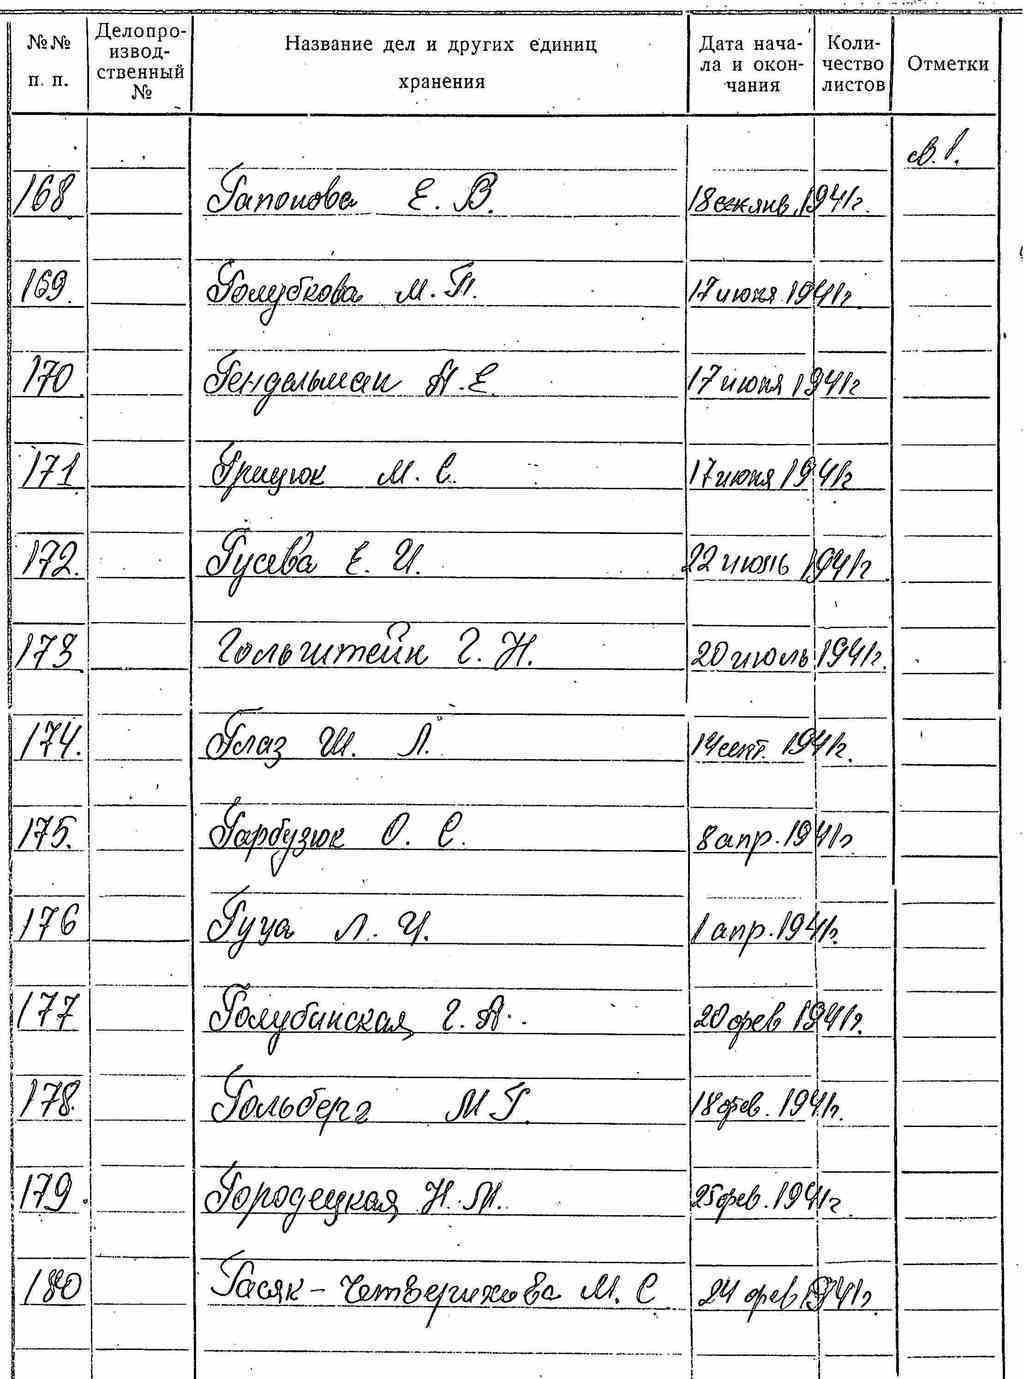 №№ п. п. Делопро-извод-ственный № Название дел и других единиц хранения Дата нача-ла и окон-чания Коли-чество листов Отметки
168. Гапонова Е. В. 18 янв. 1941г.
169. Голубкова М. П. 17 июня 1941г.
170. Гендельман А. Е. 17 июня 1941г
171. Грицюк М. С. 17 июня 1941г
172. Гусева Е. И. 22 июль 1941г.
173 Гольштейн Г. Н. 20 июль 1941г.
174. Глаз Ш. Л. 14 сент. 1941г.
175. Гарбузюк О. С. 8 апр. 1941г.
176 Гуца Л. И. 1 апр. 1941г.
177 Голубинская Г. А. 20 фев 1941г.
178. Гольберг М Г. 18 фев. 1941г.
179. Городецкая Н. М. 25 фев. 1941г.
180 Гасяк-Четверикова М. С 24 фев 1941г.